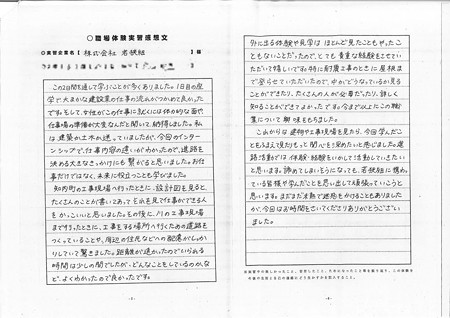 〇職場体験実習感想文
〇実習企業名【株式会社 岩根組】様
この2日間を通して学ぶことが多くありました。1日目の座
学で大まかな建設業の仕事の流れがつかめて良かった
です。そして、女性がこの仕事に就くには体力的な面や
仕事場の準備が大変なんだと聞いて納得しました。私
は建築か土木か迷っていましたが、今回のインターン
シップで、仕事内容の違いがわかったので、進路を
決める大きなきっかけにも繋がると思いました。お仕
事だけではなく、未来に役立つことも学びました。
知内町の工事現場へ行ったときに、設計図を見ると、
たくさんのことが書いてあって、それを見て仕事ができる人
をかっこいいと思いました。その後に、川の工事現場
まで行ったときに、工事をする場所へ行くための道路を
つくっていることや、周辺の住民などへの配慮がしっか
りしていて驚きました。距離が遠かったのでいられる
時間は少しの間でしたが、どんなことをしているのか、な
ど、よくわかったので良かったです。
外に出る体験や見学はほとんど見たこともやったこ
ともないことだったので、とても貴重な経験をさせてい
ただいて嬉しいです。特に耐震工事のときに屋根ま
で登らせていただいたので、中がどうなっているか見る
ことができたり、たくさんの人が必要だったり、詳しく
知ることができてよかったです。今まで以上にこの職
業について興味をもちました。
これからは建物や工事現場を見たら、今回学んだこ
とをふまえて見たり、もっと関心を深めたいと思いました。進
路活動では、体験・経験をいかして活動していきたい
と思います。諦めてしまいそうになっても、岩根組に携わ
っている皆様や学んだことを思い出して頑張っていこうと
思います。まだまだ未熟で迷惑をかけることもありました
が、今回はお時間をさいてくださりありがとうござい
ました。